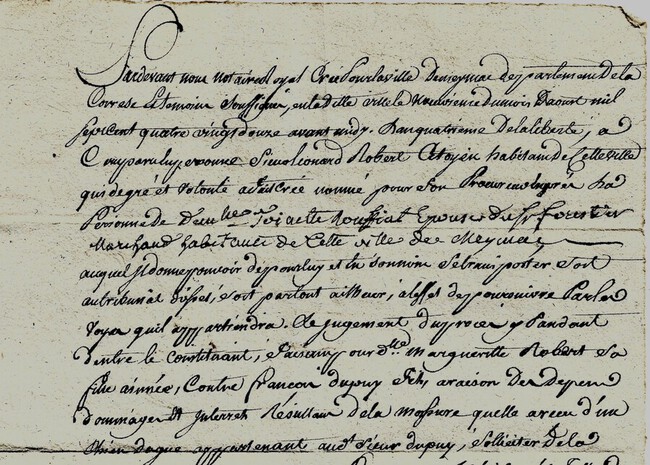 Pardevant nous notaire Royal Créé Pour la ville de meymac departement de la
Correse et temoins soussignés, en la ditte ville le neuvieme du mois Daoust mil
sept cent quatre vingt douze avant midy. Lan quatrieme de la liberté, a
Comparu en personne Sieur leonard Robert Citoyen habitant de Cette ville
qui de gré et volonté a fait créé nommé pour Son Procureur
Personne de Rouffiat Epouse du Sr forestier
Marchand habitante de Cette ville de Meymac
auquel il donne pouvoir de pour luy et En Son nom Se transporter Soit
au tribunal dussel, soit partout ailleurs, a leffet de poursuivre Par les
voyes quil appartiendra. Le jugement du procès y Pandant
dentre le Constituant, faisant pour dlle Margueritte Robert Sa
fille ainnée, Contre françois dupuy fils, a raison Des Depens
dommages Et Interrets Résultant de la morsure quelle a reçu d'un
Chien dogue appartenant audt Sieur dupuy, solliciter de la